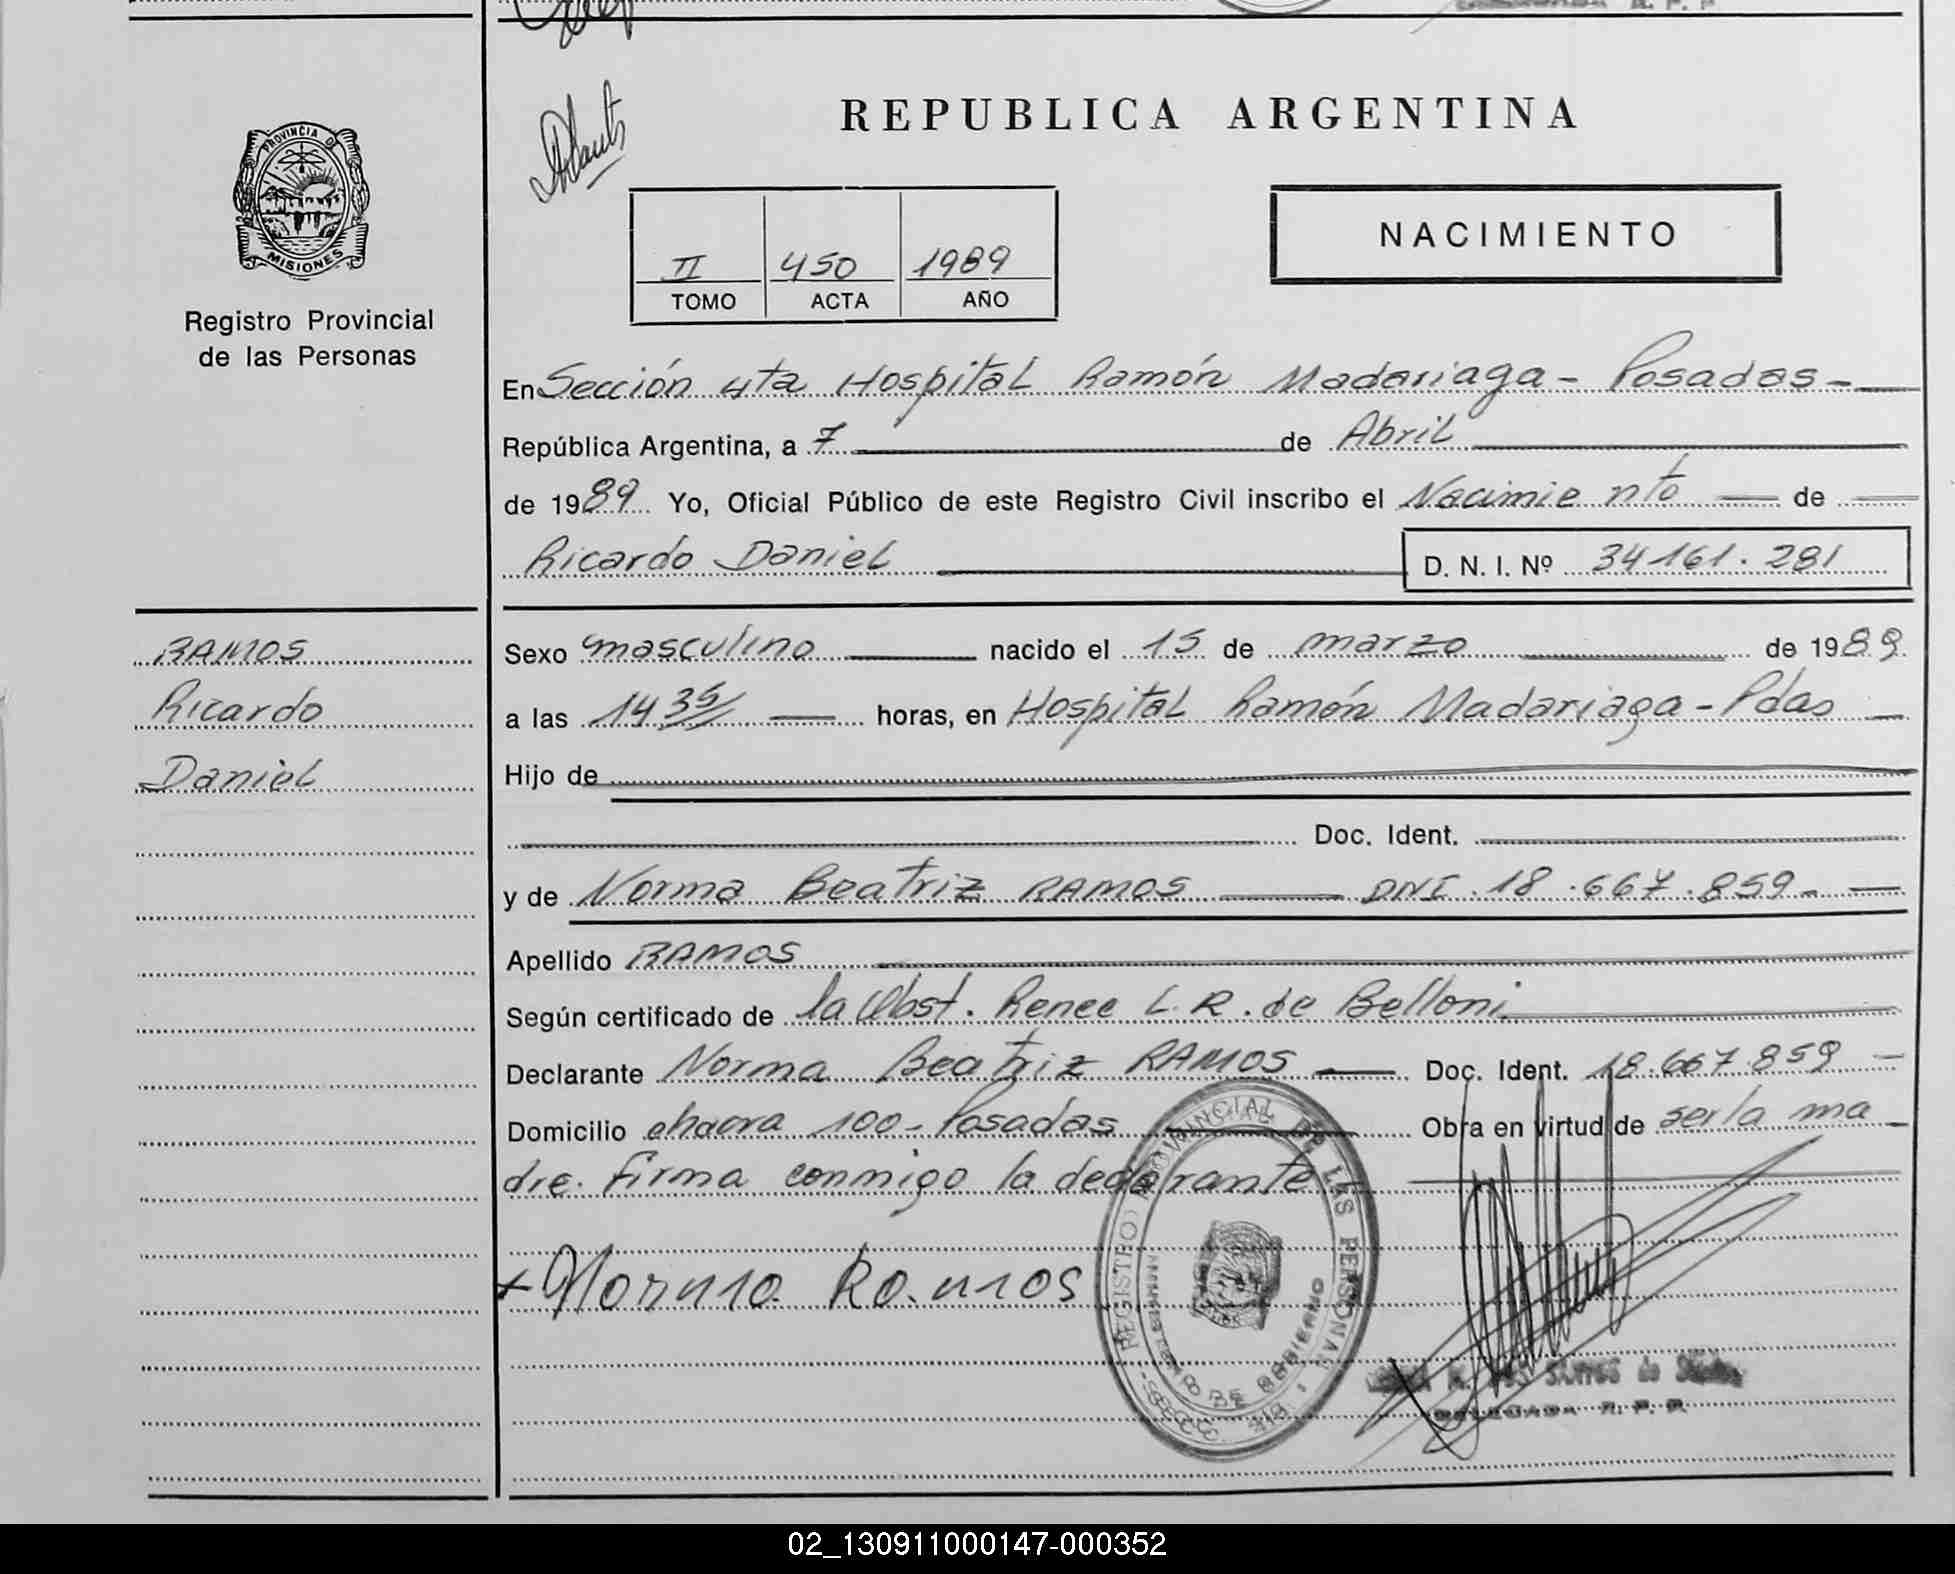 PROVINCIA DE
MISIONES
Registro Provincial
de las Personas
RAMOS
Ricardo
Daniel
REPUBLICA ARGENTINA
II 450 1989
TOMO ACTA AÑO
NACIMIENTO
En Sección 4ta Hospital Ramón Madariaga - Posadas -
República Argentina, a 7 de Abril
de 1989 Yo, Oficial Público de este Registro Civil inscribo el Nacimiento de
Ricardo Daniel D. N. I. Nº 34161.281
Sexo masculino nacido el 15 de marzo de 1989.
a las 14 35 horas, en Hospital Ramón Madariaga - Pdas
Hijo de
Doc. Ident.
y de Norma Beatriz RAMOS DNI. 18.667.859-
Apellido RAMOS
Según certificado de la Obst. Renee L.R. de Belloni
Declarante Norma Beatriz RAMOS Doc. Ident. 18.667.859
Domicilio chacra 100 - Posadas Obra en virtud de ser la ma
dre. firma conmigo la declarante
+ Norma Ramos
REGISTRO PROVINCIAL DE LAS PERSONAS
DE GOBIERNO
DELEGADA R. P. P.
02_130911000147-000352